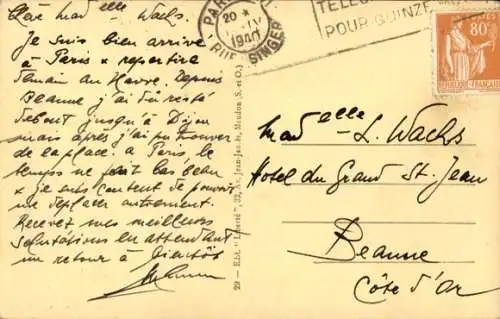 Chère Madelle Wachs.
Je suis bien arrivé
à Paris & repartirai
demain au Havre. Depuis
Beaune j'ai dû resté
debout jusqu'à Dijon
mais après j'ai pu trouver
de la place. à Paris, le
temps ne fait pas beau
& je suis content de pouvoir
me déplacer autrement.
Recevez mes meilleures
salutations en attendant
un retour à bientôt
PARIS
20 *
IV
1940
RUE SINGER
POUR QUINZE
POSTES
80c
REPUBLIQUE FRANÇAISE
29 - Edit. "Liberté", 32, Av. Jean-Jaurès, Meudon (S.-et-O.)
Madelle L. Wachs
Hotel du Grand St. Jean
Beaune
Côte d'Or